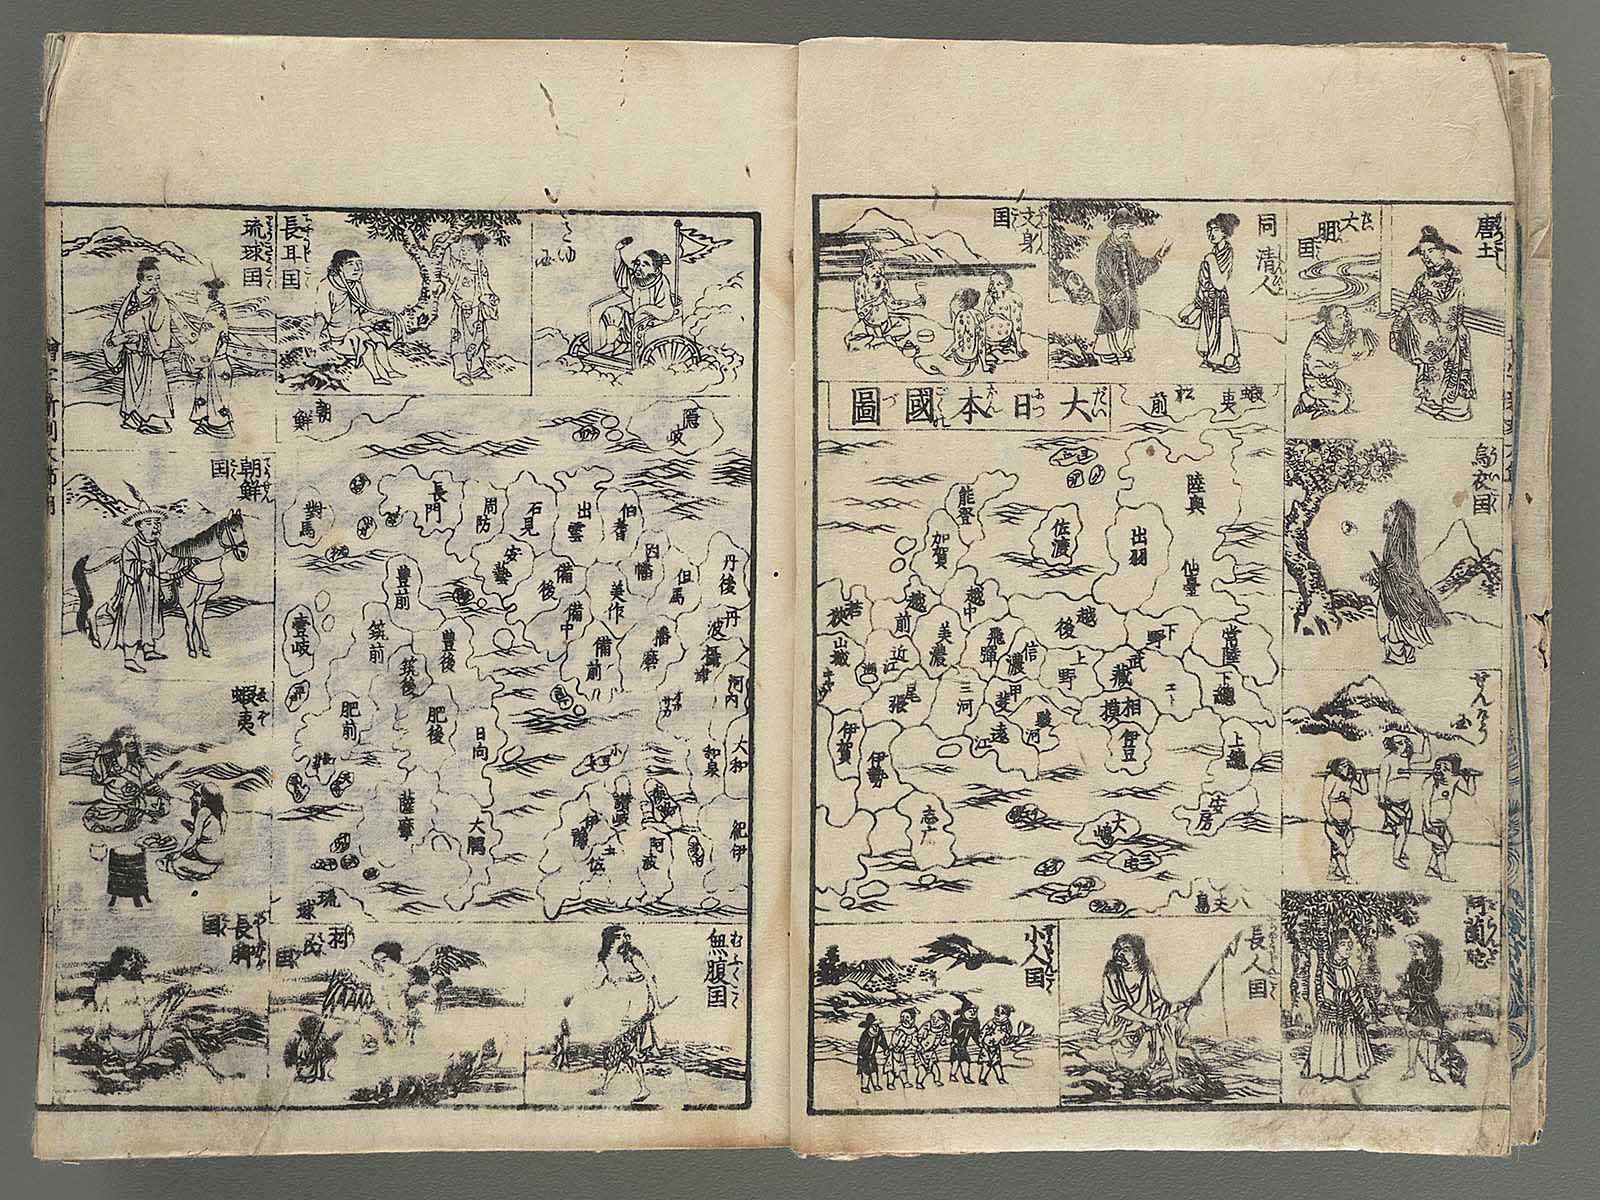 唐土
大明国
同清人
文身国
蝦夷松前
大日本國圖
烏衣国
せんくう
阿蘭陀
長人国
小人国
陸奥
出羽
仙臺
佐渡
能登
加賀
越中
越前
越後
下野
常陸
下總
上總
安房
武蔵
上野
信濃
飛騨
美濃
近江
若狭
山城
尾張
三河
甲斐
遠江
駿河
相模
伊豆
伊賀
伊勢
志广
大嶋
三宅
八丈島
長耳国
琉球国
朝鮮
隠岐
朝鮮国
蝦夷
長脚国
羽民国
無腹国
對馬
長門
周防
石見
出雲
伯耆
因幡
但馬
丹後
丹波
安藝
備後
備中
備前
美作
播磨
攝津
河内
大和
和泉
紀伊
豊前
豊後
筑前
筑後
壹岐
平戸
肥前
肥後
日向
薩摩
大隅
小豆
讃岐
伊豫
土佐
阿波
琉球